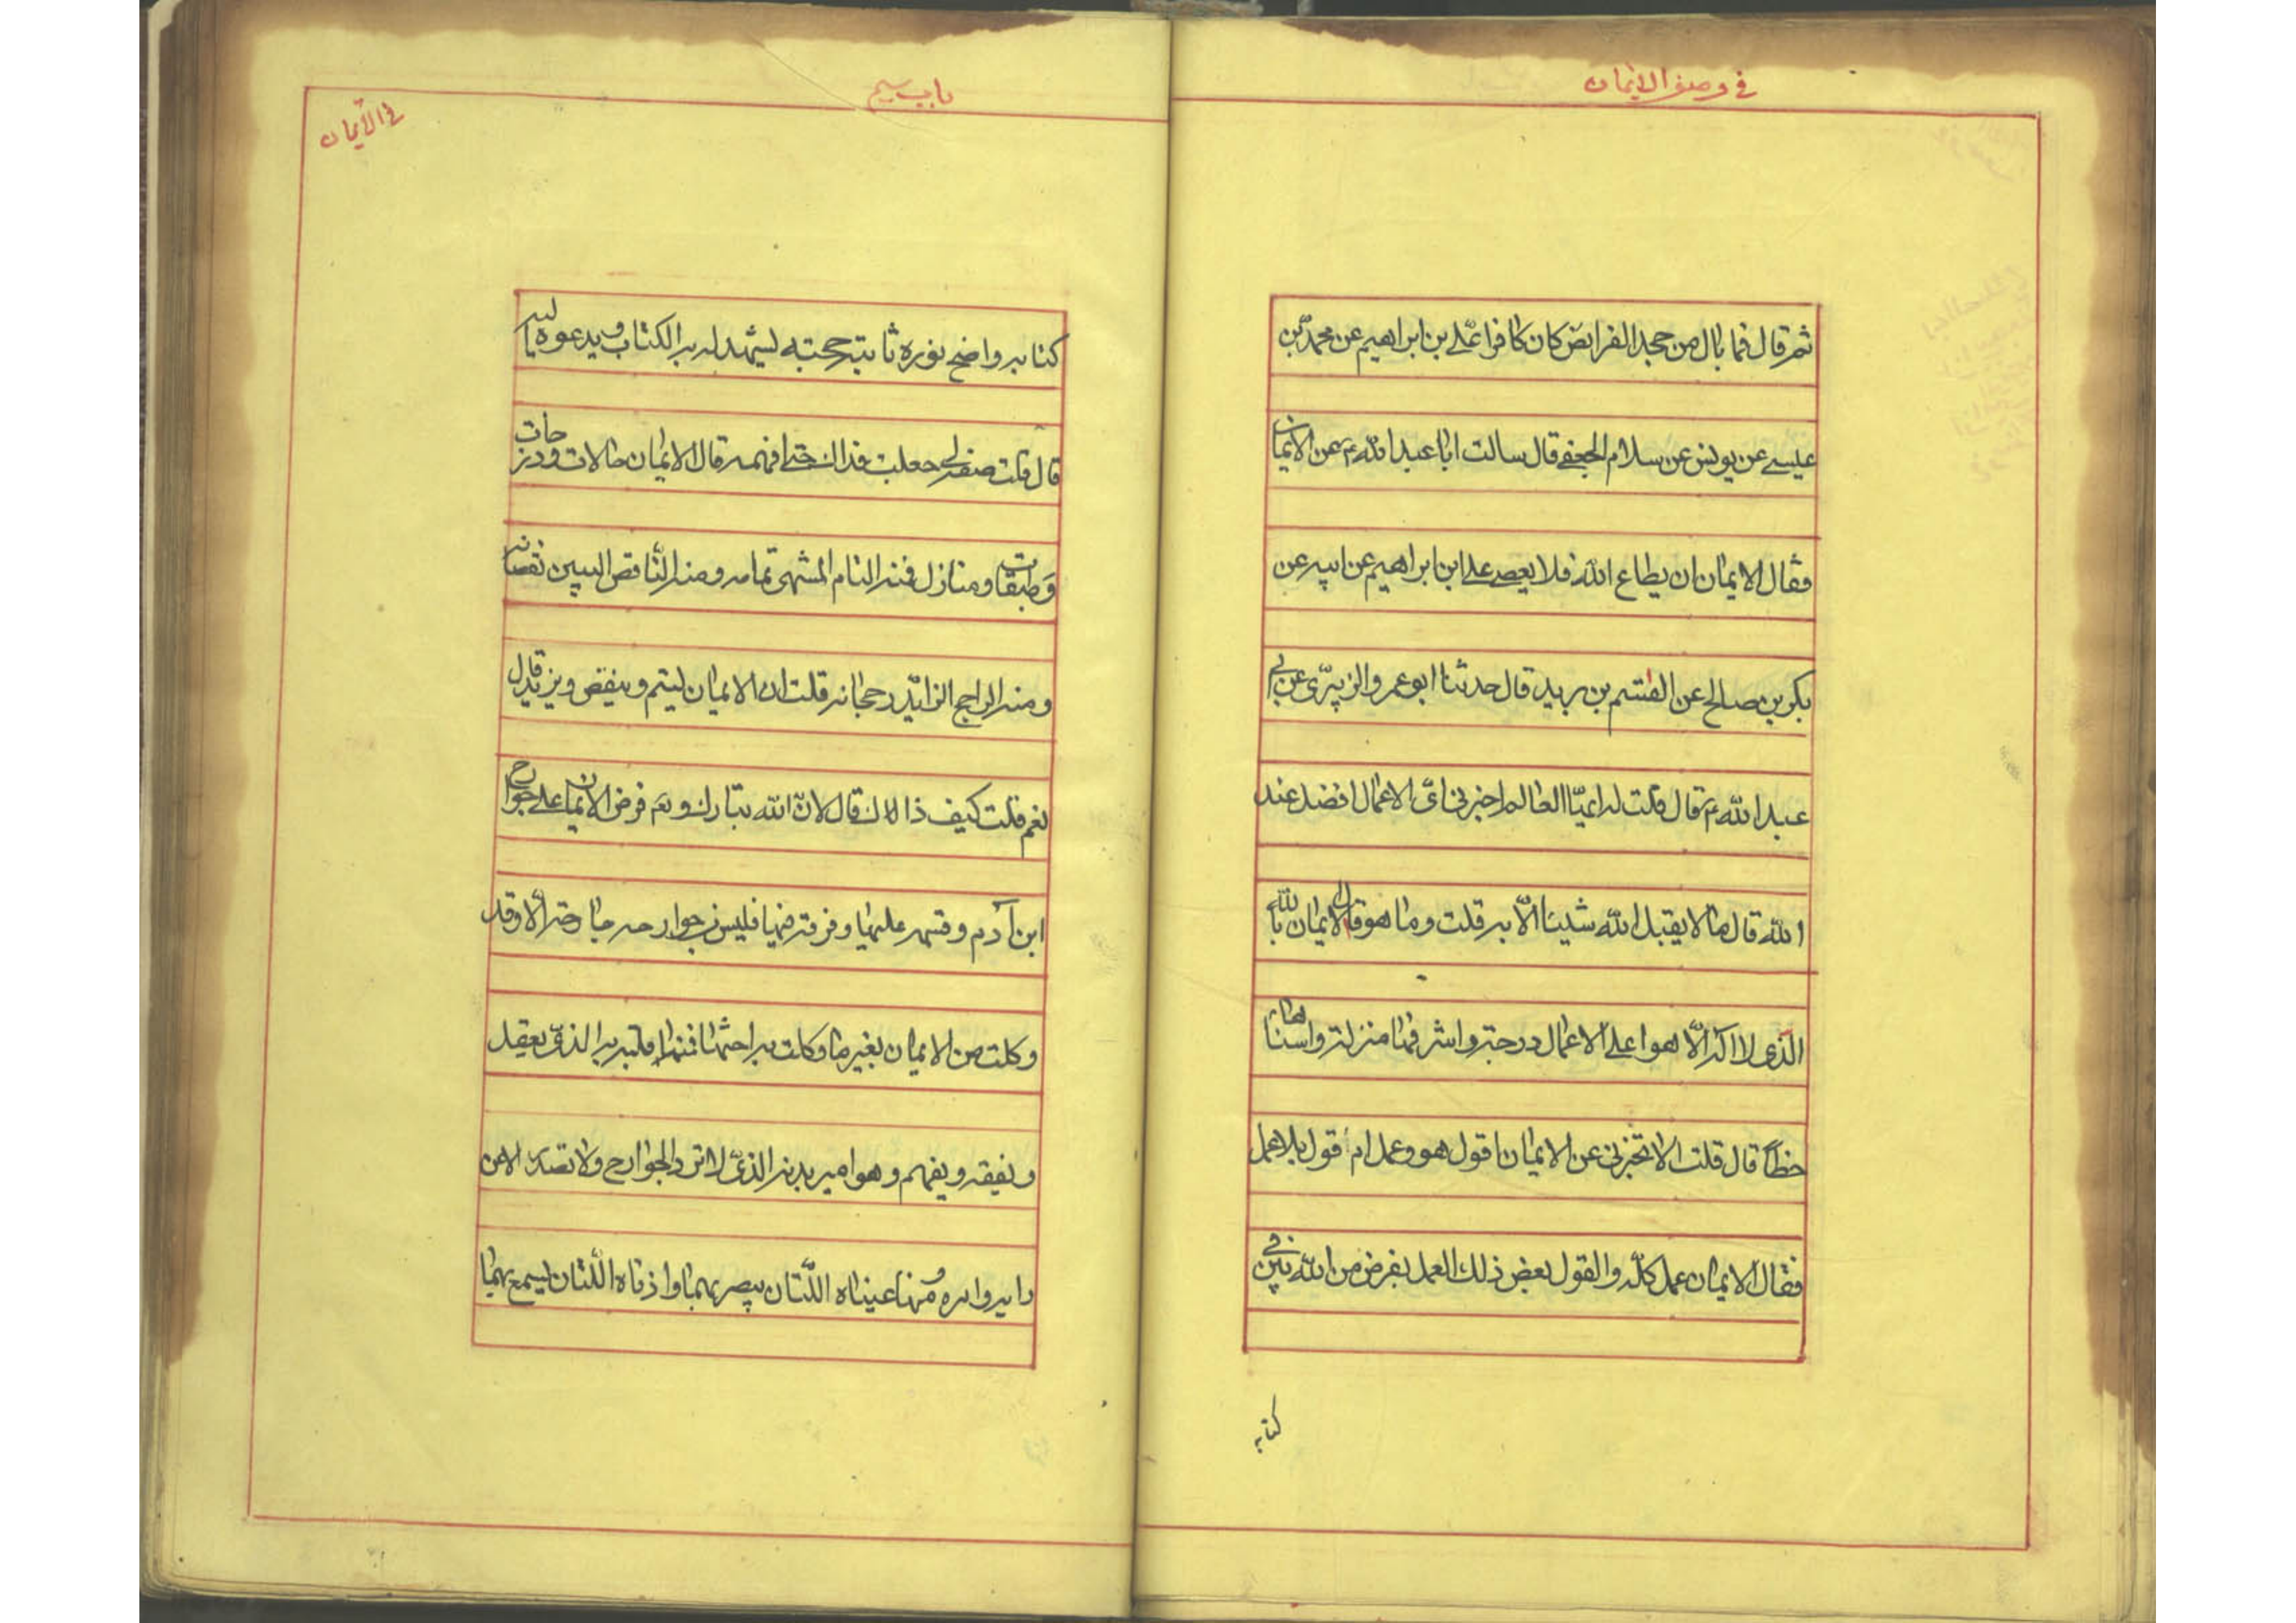 في وصف الايمان
ثم قال فما بال من جحد الفرايض كان كافرا علي بن ابراهيم عن محمد بن
عيسى عن يونس عن سلام الجعفي قال سالت ابا عبد الله ع عن الايمان
فقال الايمان ان يطاع الله فلا يعصى علي ابن ابراهيم عن ابيه عن
بكر بن صالح عن القسم بن بريد قال حدثنا ابو عمرو الزبيري عن ابي
عبد الله ع قال قلت له ايها العالم اخبرني اي الاعمال افضل عند
الله قال ما لا يقبل الله شيئا الا به قلت وما هو قال الايمان بالله
الذي لا اله الا هو اعلى الاعمال درجة واشرفها منزلة واسناها
حظا قال قلت الا تخبرني عن الايمان اقول هو وعمل ام قول بلا عمل
فقال الايمان عمل كله والقول بعض ذلك العمل بفرض من الله بين في
كتابه
باب سيم
في الايمان
كتابه واضح نوره ثابتة حجته يشهد له به الكتاب ويدعوه اليه
قال قلت صفه لي جعلت فداك حتى افهمه قال الايمان حالات ودرجات
وطبقات ومنازل فمنه التام المنتهى تمامه ومنه الناقص البين نقصانه
ومنه الراجح الزائد رجحانه قلت ان الايمان ليتم وينقص ويزيد قال
نعم قلت كيف ذلك قال لان الله تبارك وتع فرض الايمان على جوارح
ابن آدم وقسمه عليها وفرقه فيها فليس من جوارحه جارحة الا وقد
وكلت من الايمان بغير ما وكلت به اختها فمنها قلبه الذي به يعقل
ويفقه ويفهم وهو امير بدنه الذي لا ترد الجوارح ولا تصدر الا عن
رايه وامره ومنها عيناه اللتان يبصر بهما واذناه اللتان يسمع بهما